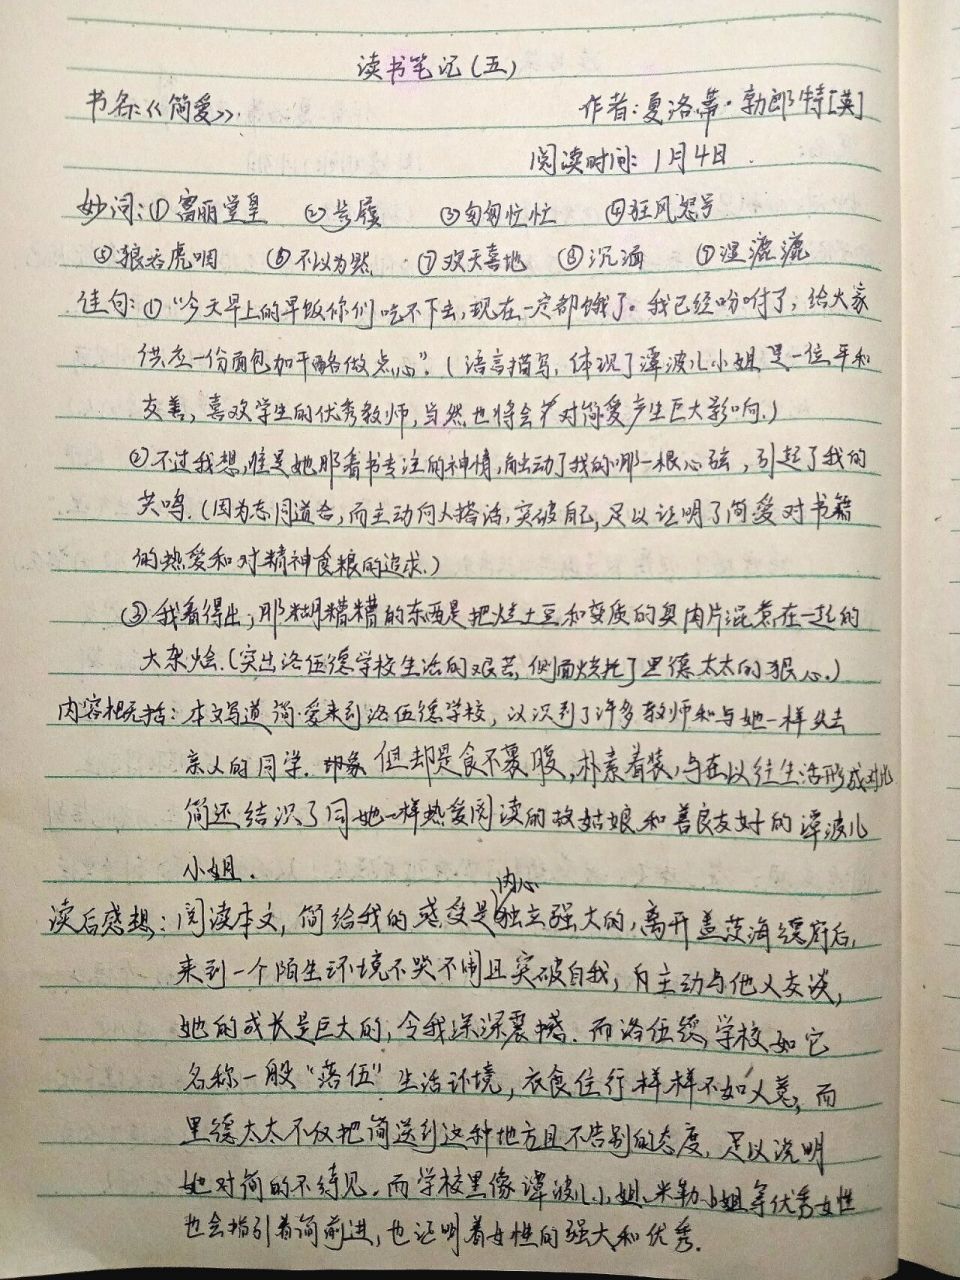 读书笔记(五)
书名:《简爱》. 作者:夏洛蒂·勃郎特[英]
阅读时间: 1月4日.
妙词:①富丽堂皇 ② ③匆匆忙忙 ④狂风怒号
⑤狼吞虎咽 ⑥不以为然 ⑦欢天喜地 ⑧沉湎 ⑨湿漉漉
佳句:①“今天早上的早饭你们吃不下去,现在一定都饿了。我已经吩咐了,给大家
供应一份面包加干酪做点心”。(语言描写,体现了谭波儿小姐是一位平和
友善,喜欢学生的优秀教师,当然也将会对简爱产生巨大影响.)
②不过我想,准是她那看书专注的神情,触动了我的哪一根心弦,引起了我的
共鸣.(因为志同道合,而主动向人搭话,突破自己,足以证明了简爱对书籍
的热爱和对精神食粮的追求.)
③我看得出,那糊糟糟的东西是把烂土豆和变质的臭肉片混煮在一起的
大杂烩.(突出洛伍德学校生活的艰苦,侧面烘托了里德太太的狠心.)
内容概括:本文写道简·爱来到洛伍德学校,认识到了许多教师和与她一样失去
亲人的同学.印象但却是食不裹腹,朴素着装,与在以往生活形成对比
简还结识了同她一样热爱阅读的故姑娘和善良友好的谭波儿
小姐.
读后感想:阅读本文,简给我的感受是内心独立强大的,离开盖茨海德府后,
来到一个陌生环境不哭不闹且突破自我,自主动与他人交谈,
她的成长是巨大的,令我深深震撼.而洛伍德学校如它
名称一般“落伍”生活环境,衣食住行样样不如人意,而
里德太太不仅把简送到这种地方且不告别的态度,足以说明
她对简的不待见.而学校里像谭波儿小姐、米勒小姐等优秀女性
也会指引着简前进,也证明着女性的强大和优秀.